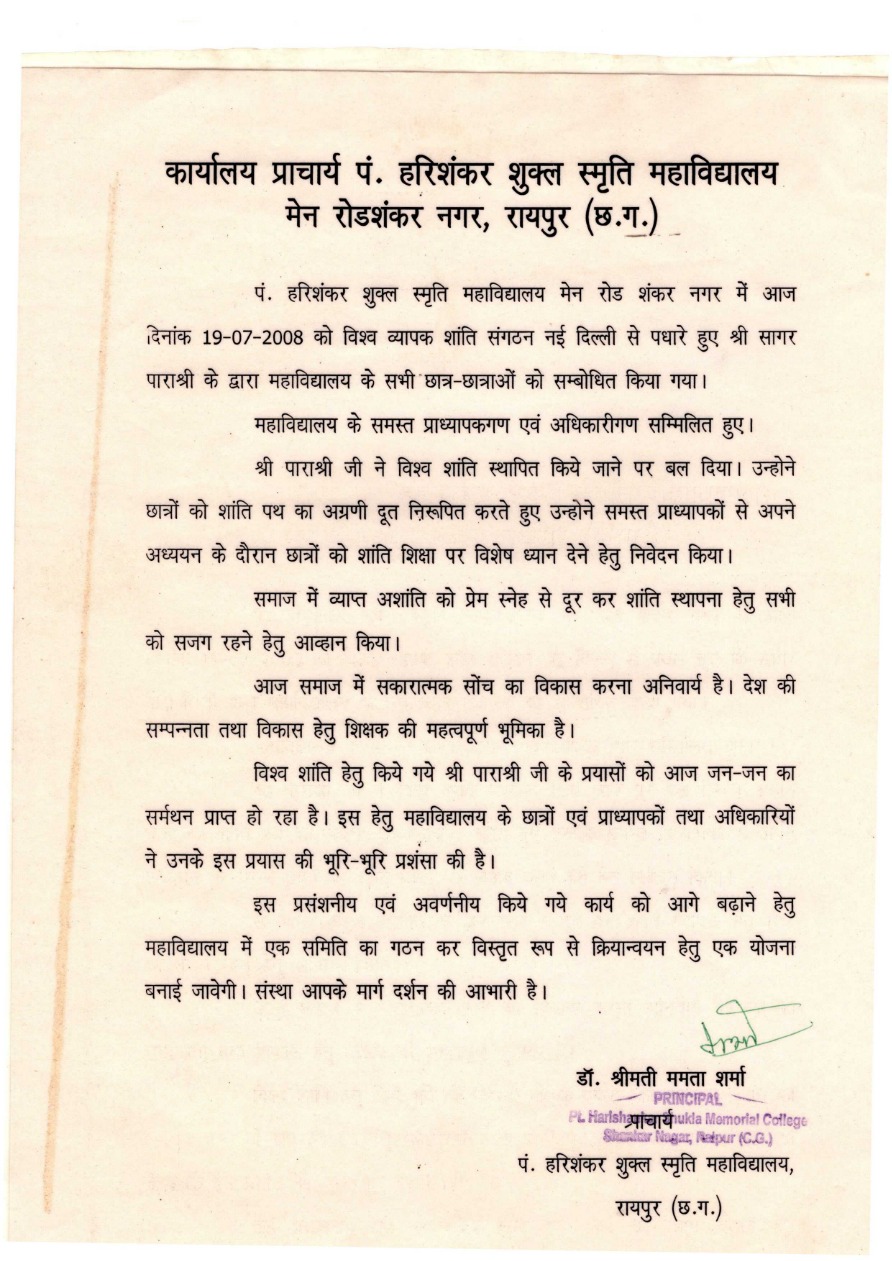 कार्यालय प्राचार्य पं. हरिशंकर शुक्ल स्मृति महाविद्यालय
मेन रोडशंकर नगर, रायपुर (छ.ग.)
पं. हरिशंकर शुक्ल स्मृति महाविद्यालय मेन रोड शंकर नगर में आज
दिनांक 19-07-2008 को विश्व व्यापक शांति संगठन नई दिल्ली से पधारे हुए श्री सागर
पाराश्री के द्वारा महाविद्यालय के सभी छात्र-छात्राओं को सम्बोधित किया गया।
महाविद्यालय के समस्त प्राध्यापकगण एवं अधिकारीगण सम्मिलित हुए।
श्री पाराश्री जी ने विश्व शांति स्थापित किये जाने पर बल दिया। उन्होने
छात्रों को शांति पथ का अग्रणी दूत निरूपित करते हुए उन्होने समस्त प्राध्यापकों से अपने
अध्ययन के दौरान छात्रों को शांति शिक्षा पर विशेष ध्यान देने हेतु निवेदन किया।
समाज में व्याप्त अशांति को प्रेम स्नेह से दूर कर शांति स्थापना हेतु सभी
को सजग रहने हेतु आव्हान किया।
आज समाज में सकारात्मक सोंच का विकास करना अनिवार्य है। देश की
सम्पन्नता तथा विकास हेतु शिक्षक की महत्वपूर्ण भूमिका है।
विश्व शांति हेतु किये गये श्री पाराश्री जी के प्रयासों को आज जन-जन का
सर्मथन प्राप्त हो रहा है। इस हेतु महाविद्यालय के छात्रों एवं प्राध्यापकों तथा अधिकारियों
ने उनके इस प्रयास की भूरि-भूरि प्रशंसा की है।
इस प्रसंशनीय एवं अवर्णनीय किये गये कार्य को आगे बढ़ाने हेतु
महाविद्यालय में एक समिति का गठन कर विस्तृत रूप से क्रियान्वयन हेतु एक योजना
बनाई जावेगी। संस्था आपके मार्ग दर्शन की आभारी है।
डॉ. श्रीमती ममता शर्मा
PRINCIPAL
Pt. Memorial College
प्राचार्य
Shankar Nagar, Raipur (C.G.)
पं. हरिशंकर शुक्ल स्मृति महाविद्यालय,
रायपुर (छ.ग.)